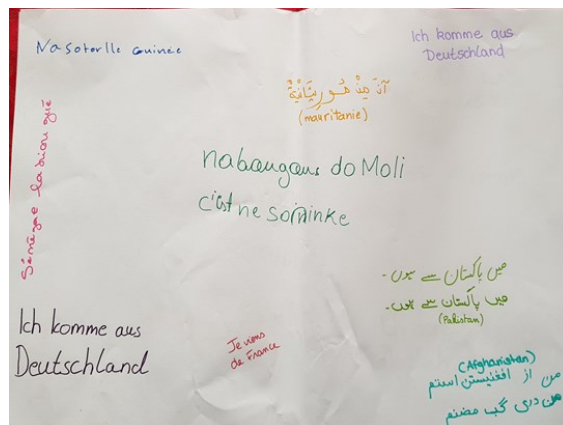 Na sotorlle Guinée
Ich komme aus
Deutschland
(mauritanie)
nabangans do Moli
c'est ne soninke
میں پاکستان سے ہوں -
میں پاکستان سے ہوں -
(Pakistan)
Ich komme aus
Deutschland
Je viens
de France
(Afghanistan)
من از افغنیستن استم
من دری گب مضنم